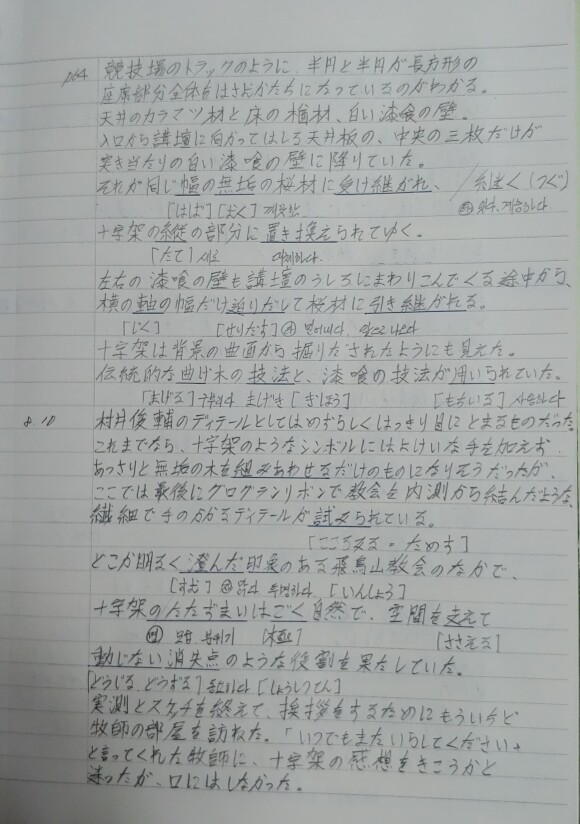 p64 競技場のトラックのように、半月と半月が長方形の
座席部分全体をはさむかたちになっているのがわかる。
天井のカラマツ材と床の楢材、白い漆喰の壁。
入口から講壇に向かってはしる天井板の、中央の三枚だけが
突き当たりの白い漆喰の壁に降りていた。
それが同じ幅の無垢の桜材に受け継がれ、 / 継ぐ (つぐ)
[はば] [むく]
十字架の縦の部分に置き換えられてゆく。
[たて] 세로 대체하다.
左右の漆喰の壁も講壇のうしろにまわりこんでくる途中から、
横の軸の幅だけ迫りだして桜材に引き継がれる。
[じく] [せりだす]
十字架は背景の曲面から掘りだされたようにも見えた。
伝統的な曲げ木の技法と、漆喰の技法が用いられていた。
[まげる] 구부리다 まげき [ぎほう] [もちいる] 사용하다
8.10 村井俊輔のディテールとしてはめずらしくはっきり目にとまるものだった。
これまでなら、十字架のようなシンボルにはよけいな手を加えず、
あっさりと無垢の木を組みあわせるだけのものになりそうだったが、
ここでは最後にグログランリボンで教会を内側から結んだような、
繊細で手のかかるディテールが試みられている。
[こころみる・ためす]
どこか明るく澄んだ印象のある飛鳥山教会のなかで、
[すむ] 맑다 투명하다. [いんしょう]
十字架のたたずまいはごく自然で、空間を支えて
모습 분위기 [ささえる]
動じない消失点のような役割を果たしていた。
[どうじる、どうずる] 동요하다 [しょうしつてん]
実測とスケッチを終えて、挨拶をするためにもういちど
牧師の部屋を訪ねた。「いつでもまたいらしてください」
と言ってくれた牧師に、十字架の感想をきこうかと
迷ったが、口にはしなかった。